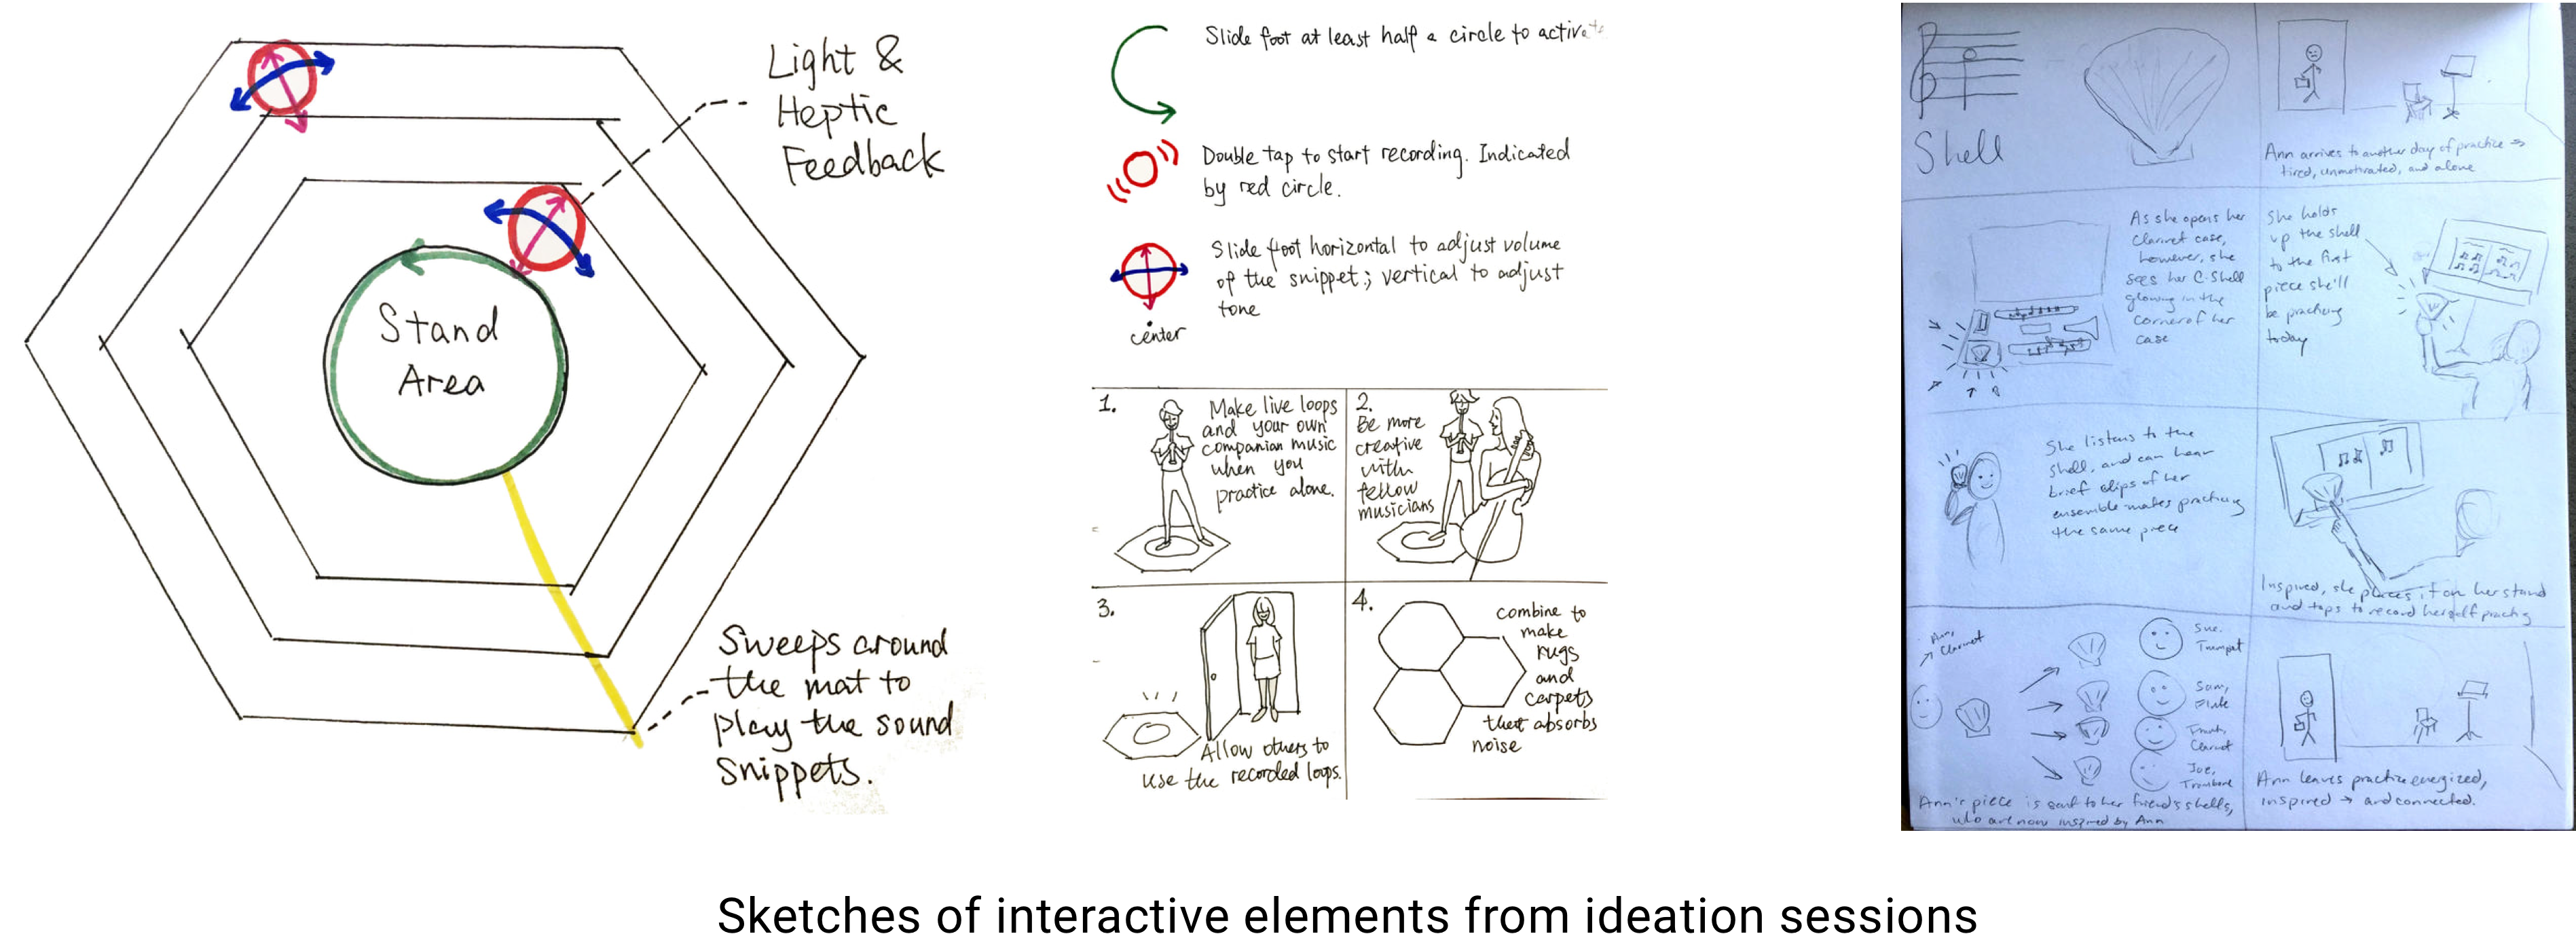 Light &
Heptic
Feedback
Stand
Area
Sweeps around
the mat to
play the sound
snippets.
Slide foot at least half a circle to activate
Double tap to start recording. Indicated
by red circle.
Slide foot horizontal to adjust volume
of the snippet; vertical to adjust
tone
center
1.
Make live loops
and your own
companion music
when you
practice alone.
2.
Be more
creative
with
fellow
musicians
3.
Allow others to
use the recorded loops.
4.
combine to
make
rugs
and
carpets
that absorbs
noise
Shell
Ann arrives to another day of practice
tired, unmotivated, and alone
As she opens her
clarinet case,
however, she
sees her C-Shell
glowing in the
corner of her
case
She holds
up the shell
to the first
piece she'll
be practicing
today
She listens to the
shell, and can hear
brief clips of her
ensemble mates practicing
the same piece
Inspired, she places it on her stand
and taps to record herself practicing
Ann,
Clarinet
Sue,
Trumpet
Sam,
Flute
Frank,
Clarinet
Joe,
Trombone
Ann's piece is sent to her friend's shells,
who are now inspired by Ann
Ann leaves practice energized,
inspired → and connected.
Sketches of interactive elements from ideation sessions